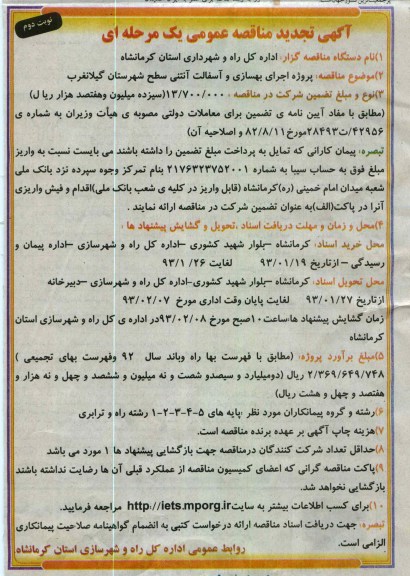 نوبت دوم
آگهی تجدید مناقصه عمومی یک مرحله ای
۱)نام دستگاه مناقصه گزار: اداره کل راه و شهرداری استان کرمانشاه
۲)موضوع مناقصه: پروژه اجرای بهسازی و آسفالت آنتنی سطح شهرستان گیلانغرب
۳)نوع و مبلغ تضمین شرکت در مناقصه : ۱۳/۷۰۰/۰۰۰(سیزده میلیون وهفتصد هزار ریا ل)
(مطابق با مفاد آیین نامه ی تضمین برای معاملات دولتی مصوبه ی هیأت وزیران به شماره ی
۴۲۹۵۶/ت۲۸۴۹۳مورخ۸۲/۸/۱۱ و اصلاحیه آن)
تبصره: پیمان کارانی که تمایل به پرداخت مبلغ تضمین را داشته باشند می بایست نسبت به واریز
مبلغ فوق به حساب سیبا به شماره ۲۱۷۶۴۲۳۷۵۲۰۰۱ بنام تمرکز وجوه سپرده نزد بانک ملی
شعبه میدان امام خمینی (ره)کرمانشاه (قابل واریز در کلیه ی شعب بانک ملی)اقدام و فیش واریزی
آنرا در پاکت(الف)به عنوان تضمین شرکت در مناقصه ارائه نمایند .
۴)محل و زمان و مهلت دریافت اسناد ،تحویل و گشایش پیشنهاد ها :
محل خرید اسناد: کرمانشاه –بلوار شهید کشوری –اداره کل راه و شهرسازی –اداره پیمان و
رسیدگی – ازتاریخ ۹۳/۰۱/۱۹ لغایت ۹۳/۱ /۲۶
محل تحویل اسناد: کرمانشاه –بلوار شهید کشوری-اداره کل راه و شهرسازی –دبیرخانه
ازتاریخ ۹۳/۰۱/۲۷ لغایت پایان وقت اداری مورخ ۹۳/۰۲/۰۷
زمان گشایش پیشنهاد ها:ساعت۱۰صبح مورخ ۹۳/۰۲/۰۸در اداره ی کل راه و شهرسازی استان
کرمانشاه
۵)مبلغ برآورد پروژه: (مطابق با فهرست بها راه وباند سال ۹۲ وفهرست بهای تجمیعی )
۲/۳۶۹/۶۴۹/۷۴۸ ریال (دومیلیارد و سیصدو شصت و نه میلیون و ششصد و چهل و نه هزار و
هفتصد و چهل و هشت ریال)
۶)رشته و گروه پیمانکاران مورد نظر :پایه های ۵-۴-۳-۲-۱ رشته راه و ترابری
۷)هزینه چاپ آگهی بر عهده برنده مناقصه است.
۸)حداقل تعداد شرکت کنندگان درمناقصه جهت بازگشایی پیشنهاد ها ۱ مورد می باشد
۹)پاکت مناقصه گرانی که اعضای کمیسیون مناقصه از عملکرد قبلی آن ها رضایت نداشته باشند
بازگشایی نخواهد شد.
۱۰)برای کسب اطلاعات بیشتر به سایتhttp://iets.mporg.ir مراجعه فرمایید.
تبصره: جهت دریافت اسناد مناقصه ارائه درخواست کتبی به انضمام گواهینامه صلاحیت پیمانکاری
الزامی است.
روابط عمومی اداره کل راه و شهرسازی استان کرمانشاه